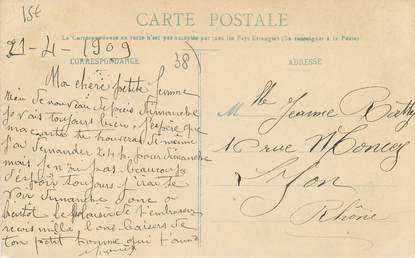 15€
CARTE POSTALE
La Correspondance au verso n'est pas acceptée par tous les Pays Etrangers (Se renseigner à la Poste)
21-4-1909
CORRESPONDANCE
38
ADRESSE
Ma chéri petite femme
rien de nouveau depuis dimanche
je vais toujours bien, j'espère que
ma carte te trouvera de même
j'ai demander 24 h pour dimanche
mais je n'ai pas beaucoup
d'espoir toujours j'irai te
voir dimanche donc a
bientot le plaisir de t'embrasser
recois mille bons baisers de
ton petit homme qui t'aime
Mlle Jeanne
16 rue Moncey
Lyon
Rhône